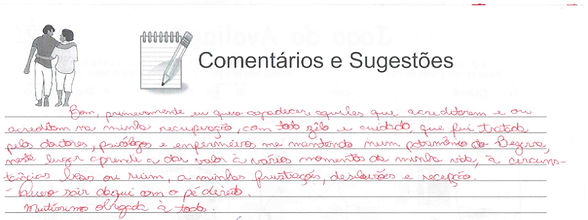 Comentários e Sugestões
Bom, primeiramente eu quero agradecer aqueles que acreditaram e ou
acreditam na minha recuperação, com todo zêlo e cuidado, que fui tratada
pelos doutores, psicólogos e enfermeiros me mantendo num patrimônio do Bezerra,
neste lugar aprendi a dar valor à vários momentos da minha vida, à circuns-
tâncias boas ou ruim, a minhas frustrações, desilusões e recepção.
- Quero sair daqui com o pé direito.
Muitíssimo obrigada à todos.